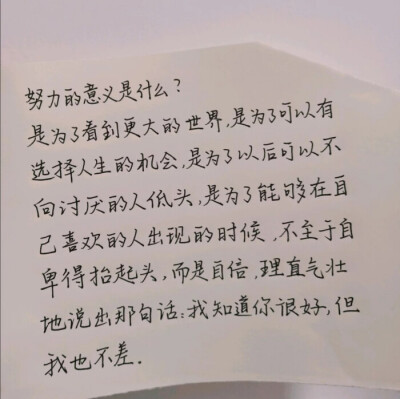 努力的意义是什么？
是为了看到更大的世界,是为了可以有
选择人生的机会,是为了以后可以不
向讨厌的人低头,是为了能够在自
己喜欢的人出现的时候,不至于自
卑得抬起头,而是自倍,理直气壮
地说出那句话:我知道你很好,但
我也不差.